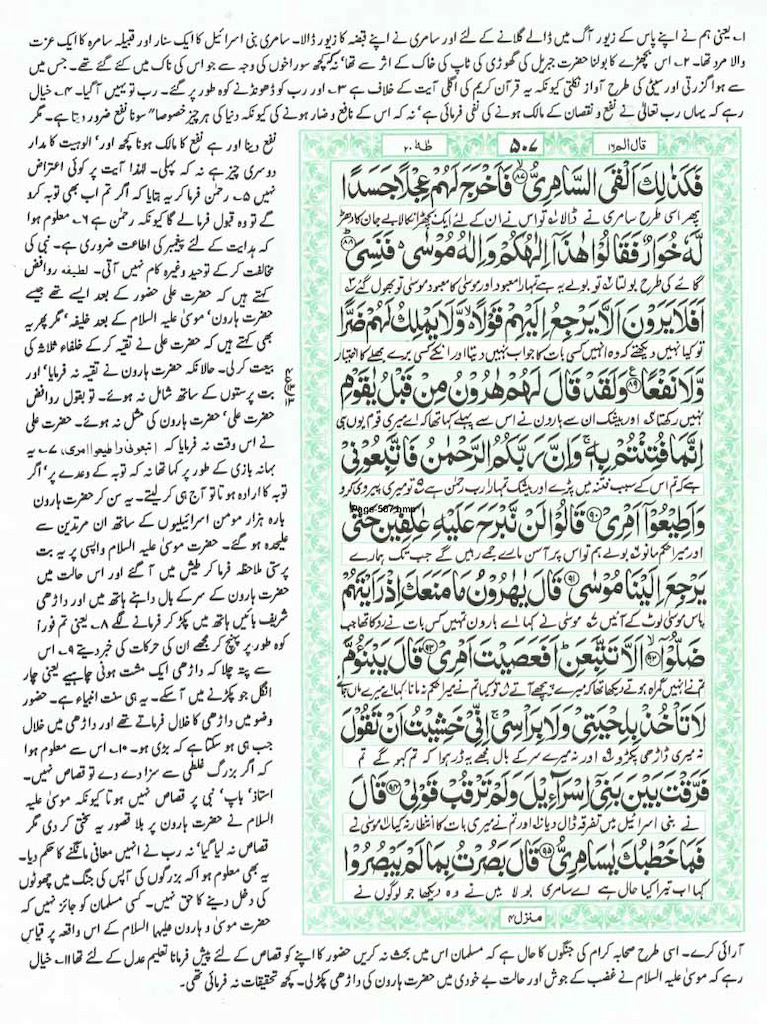 ۱۔ یعنی ہم نے اپنے پاس کے زیور آگ میں ڈالے گلانے کے لئے اور سامری نے اپنے قبضہ کا زیور ڈالا۔ سامری بنی اسرائیل کا ایک سنار اور قبیلہ سامرہ کا ایک عزت
والا مرد تھا۔ ۲۔ اس بچھڑے کا بولنا حضرت جبریل کی گھوڑی کی ٹاپ کی خاک کے اثر سے تھا' نہ کہ کچھ سوراخوں کی وجہ سے جو اس کی ناک میں کئے گئے تھے۔ جس میں
سے ہوا گزرتی اور سیٹی کی طرح آواز نکلتی کیونکہ یہ قرآن کریم کی اگلی آیت کے خلاف ہے ۳۔ اور رب کو ڈھونڈنے کوہ طور پر گئے۔ رب تو یہیں آگیا۔ ۴۔ خیال
رہے کہ یہاں رب تعالیٰ نے نفع و نقصان کے مالک ہونے کی نفی فرمائی ہے' نہ کہ اس کے نافع و ضار ہونے کی کیونکہ دنیا کی ہر چیز خصوصاً" سونا نفع ضرور دیتا ہے۔ مگر
قال الم ۱۶ ۵۰۷ طٰہٰ ۲۰
فَكَذٰلِكَ اَلْقَى السَّامِرِىُّ ۙ﴿۸۷﴾ فَاَخْرَجَ لَهُمْ عِجْلًا جَسَدًا
پھر اسی طرح سامری نے ڈالا ۱ تو اس نے ان کے لئے ایک بچھڑا نکالا بے جان کا دھڑ
لَّهٗ خُوَارٌ فَقَالُوْا هٰذَاۤ اِلٰهُكُمْ وَاِلٰهُ مُوْسٰى ۬ فَنَسِىَ ؕ﴿۸۸﴾
گائے کی طرح بولتا ۲ تو بولے یہ ہے تمہارا معبود اور موسٰی کا معبود موسٰی تو بھول گئے ۳
اَفَلَا يَرَوْنَ اَلَّا يَرْجِعُ اِلَيْهِمْ قَوْلًا ۙ وَّلَا يَمْلِكُ لَهُمْ ضَرًّا
تو کیا نہیں دیکھتے کہ وہ انہیں کسی بات کا جواب نہیں دیتا اور انکے کسی برے بھلے کا اختیار
وَّلَا نَفْعًا ﴿۸۹﴾ وَلَقَدْ قَالَ لَهُمْ هٰرُوْنُ مِنْ قَبْلُ يٰقَوْمِ
نہیں رکھتا ۴ اور بیشک ان سے ہارون نے اس سے پہلے کہا تھا کہ اے میری قوم یوں ہی
اِنَّمَا فُتِنْتُمْ بِهٖ ۚ وَاِنَّ رَبَّكُمُ الرَّحْمٰنُ فَاتَّبِعُوْنِىْ
ہے کہ تم اس کے سبب فتنہ میں پڑے اور بیشک تمہارا رب رحمٰن ہے ۵ تو میری پیروی کرو
وَاَطِيْعُوْۤا اَمْرِىْ ﴿۹۰﴾ قَالُوْا لَنْ نَّبْرَحَ عَلَيْهِ عٰكِفِيْنَ حَتّٰى
Page-507.bmp
اور میرا حکم مانو ۶ بولے ہم تو اس پر آسن مارے جمے رہیں گے جب تک ہمارے
يَرْجِعَ اِلَيْنَا مُوْسٰى ﴿۹۱﴾ قَالَ يٰهٰرُوْنُ مَا مَنَعَكَ اِذْ رَاَيْتَهُمْ
پاس موسٰی لوٹ کے آئیں ۷ موسٰی نے کہا اے ہارون تمہیں کس بات نے روکا تھا جب
ضَلُّوْۤا ۙ﴿۹۲﴾ اَلَّا تَتَّبِعَنِ ؕ اَفَعَصَيْتَ اَمْرِىْ ﴿۹۳﴾ قَالَ يَبْنَؤُمَّ
تم نے انہیں گمراہ ہوتے دیکھا تھا کہ میرے پیچھے آتے ۸ تو کیا تم نے میرا حکم نہ مانا کہا اے میرے ماں جائے
لَا تَاْخُذْ بِلِحْيَتِىْ وَلَا بِرَاْسِىْ ۚ اِنِّىْ خَشِيْتُ اَنْ تَقُوْلَ
نہ میری داڑھی پکڑو ۹ اور نہ میرے سر کے بال مجھے یہ ڈر ہوا کہ تم کہو گے تم
فَرَّقْتَ بَيْنَ بَنِىْۤ اِسْرَآءِيْلَ وَلَمْ تَرْقُبْ قَوْلِىْ ﴿۹۴﴾ قَالَ
نے بنی اسرائیل میں تفرقہ ڈال دیا اور تم نے میری بات کا انتظار نہ کیا موسٰی نے
فَمَا خَطْبُكَ يٰسَامِرِىُّ ﴿۹۵﴾ قَالَ بَصُرْتُ بِمَا لَمْ يَبْصُرُوْا
کہا اب تیرا کیا حال ہے اے سامری بولا میں نے وہ دیکھا جو لوگوں نے
منزل ۴
نفع دینا اور ہے نفع کا مالک ہونا کچھ اور' الوہیت کا مدار
دوسری چیز ہے نہ کہ پہلی۔ لہٰذا آیت پر کوئی اعتراض
نہیں ۵۔ رحمٰن فرما کر یہ بتایا کہ اگر تم اب بھی توبہ کرو
گے تو وہ قبول فرمالے گا کیونکہ رحمٰن ہے ۶۔ معلوم ہوا
کہ ہدایت کے لئے پیغمبر کی اطاعت ضروری ہے۔ نبی کی
مخالفت کر کے توحید وغیرہ کام نہیں آتی۔ لطیفہ روافض
کہتے ہیں کہ حضرت علی حضور کے بعد ایسے تھے جیسے
حضرت ہارون' موسیٰ علیہ السلام کے بعد خلیفہ' مگر پھر یہ
بھی کہتے ہیں کہ حضرت علی نے تقیہ کر کے خلفاء ثلاثہ کی
بیعت کر لی۔ حالانکہ حضرت ہارون نے تقیہ نہ فرمایا' اور
بت پرستوں کے ساتھ شامل نہ ہوئے۔ تو بقول روافض
حضرت علی' حضرت ہارون کی مثل نہ ہوئے۔ حضرت علی
نے اس وقت نہ فرمایا کہ اتبعونی واطیعوا امری، ۷۔ یہ
بہانہ بازی کے طور پر کہا تھا نہ کہ توبہ کے وعدے پر' اگر
توبہ کا ارادہ ہوتا تو آج ہی کر لیتے۔ یہ سن کر حضرت ہارون
بارہ ہزار مومن اسرائیلیوں کے ساتھ ان مرتدین سے
علیحدہ ہو گئے۔ حضرت موسیٰ علیہ السلام واپسی پر یہ بت
پرستی ملاحظہ فرما کر طیش میں آ گئے اور اس حالت میں
حضرت ہارون کے سر کے بال داہنے ہاتھ میں اور داڑھی
شریف بائیں ہاتھ میں پکڑ کر فرمانے لگے ۸۔ یعنی تم فوراً
کوہ طور پر پہنچ کر مجھے ان کی حرکات کی خبر دیتے ۹۔ اس
سے پتہ چلا کہ داڑھی ایک مشت ہونی چاہیے یعنی چار
انگل جو پکڑنے میں آسکے۔ یہ ہی سنت انبیاء ہے۔ حضور
وضو میں داڑھی کا خلال فرماتے تھے اور داڑھی میں خلال
جب ہی ہو سکتا ہے کہ بڑی ہو۔ ۱۰۔ اس سے معلوم ہوا
کہ اگر بزرگ غلطی سے سزا دے دے تو قصاص نہیں۔
استاذ' باپ' نبی پر قصاص نہیں ہوتا کیونکہ موسیٰ علیہ
السلام نے حضرت ہارون پر بلا قصور یہ سختی کر دی مگر
قصاص نہ لیا گیا' نہ رب نے انہیں معافی مانگنے کا حکم دیا۔
یہ بھی معلوم ہوا کہ بزرگوں کی آپس کی جنگ میں چھوٹوں
کی دخل دینے کا حق نہیں۔ کسی مسلمان کو جائز نہیں کہ
حضرت موسیٰ و ہارون علیہما السلام کے اس واقعہ پر قیاس
آرائی کرے۔ اسی طرح صحابہ کرام کی جنگوں کا حال ہے کہ مسلمان اس میں بحث نہ کریں حضور کا اپنے کو قصاص کے لئے پیش فرمانا تعلیم عدل کے لئے تھا ۱۱۔ خیال
رہے کہ موسیٰ علیہ السلام نے غضب کے جوش اور حالت بے خودی میں حضرت ہارون کی داڑھی پکڑ لی۔ کچھ تحقیقات نہ فرمائی تھی۔